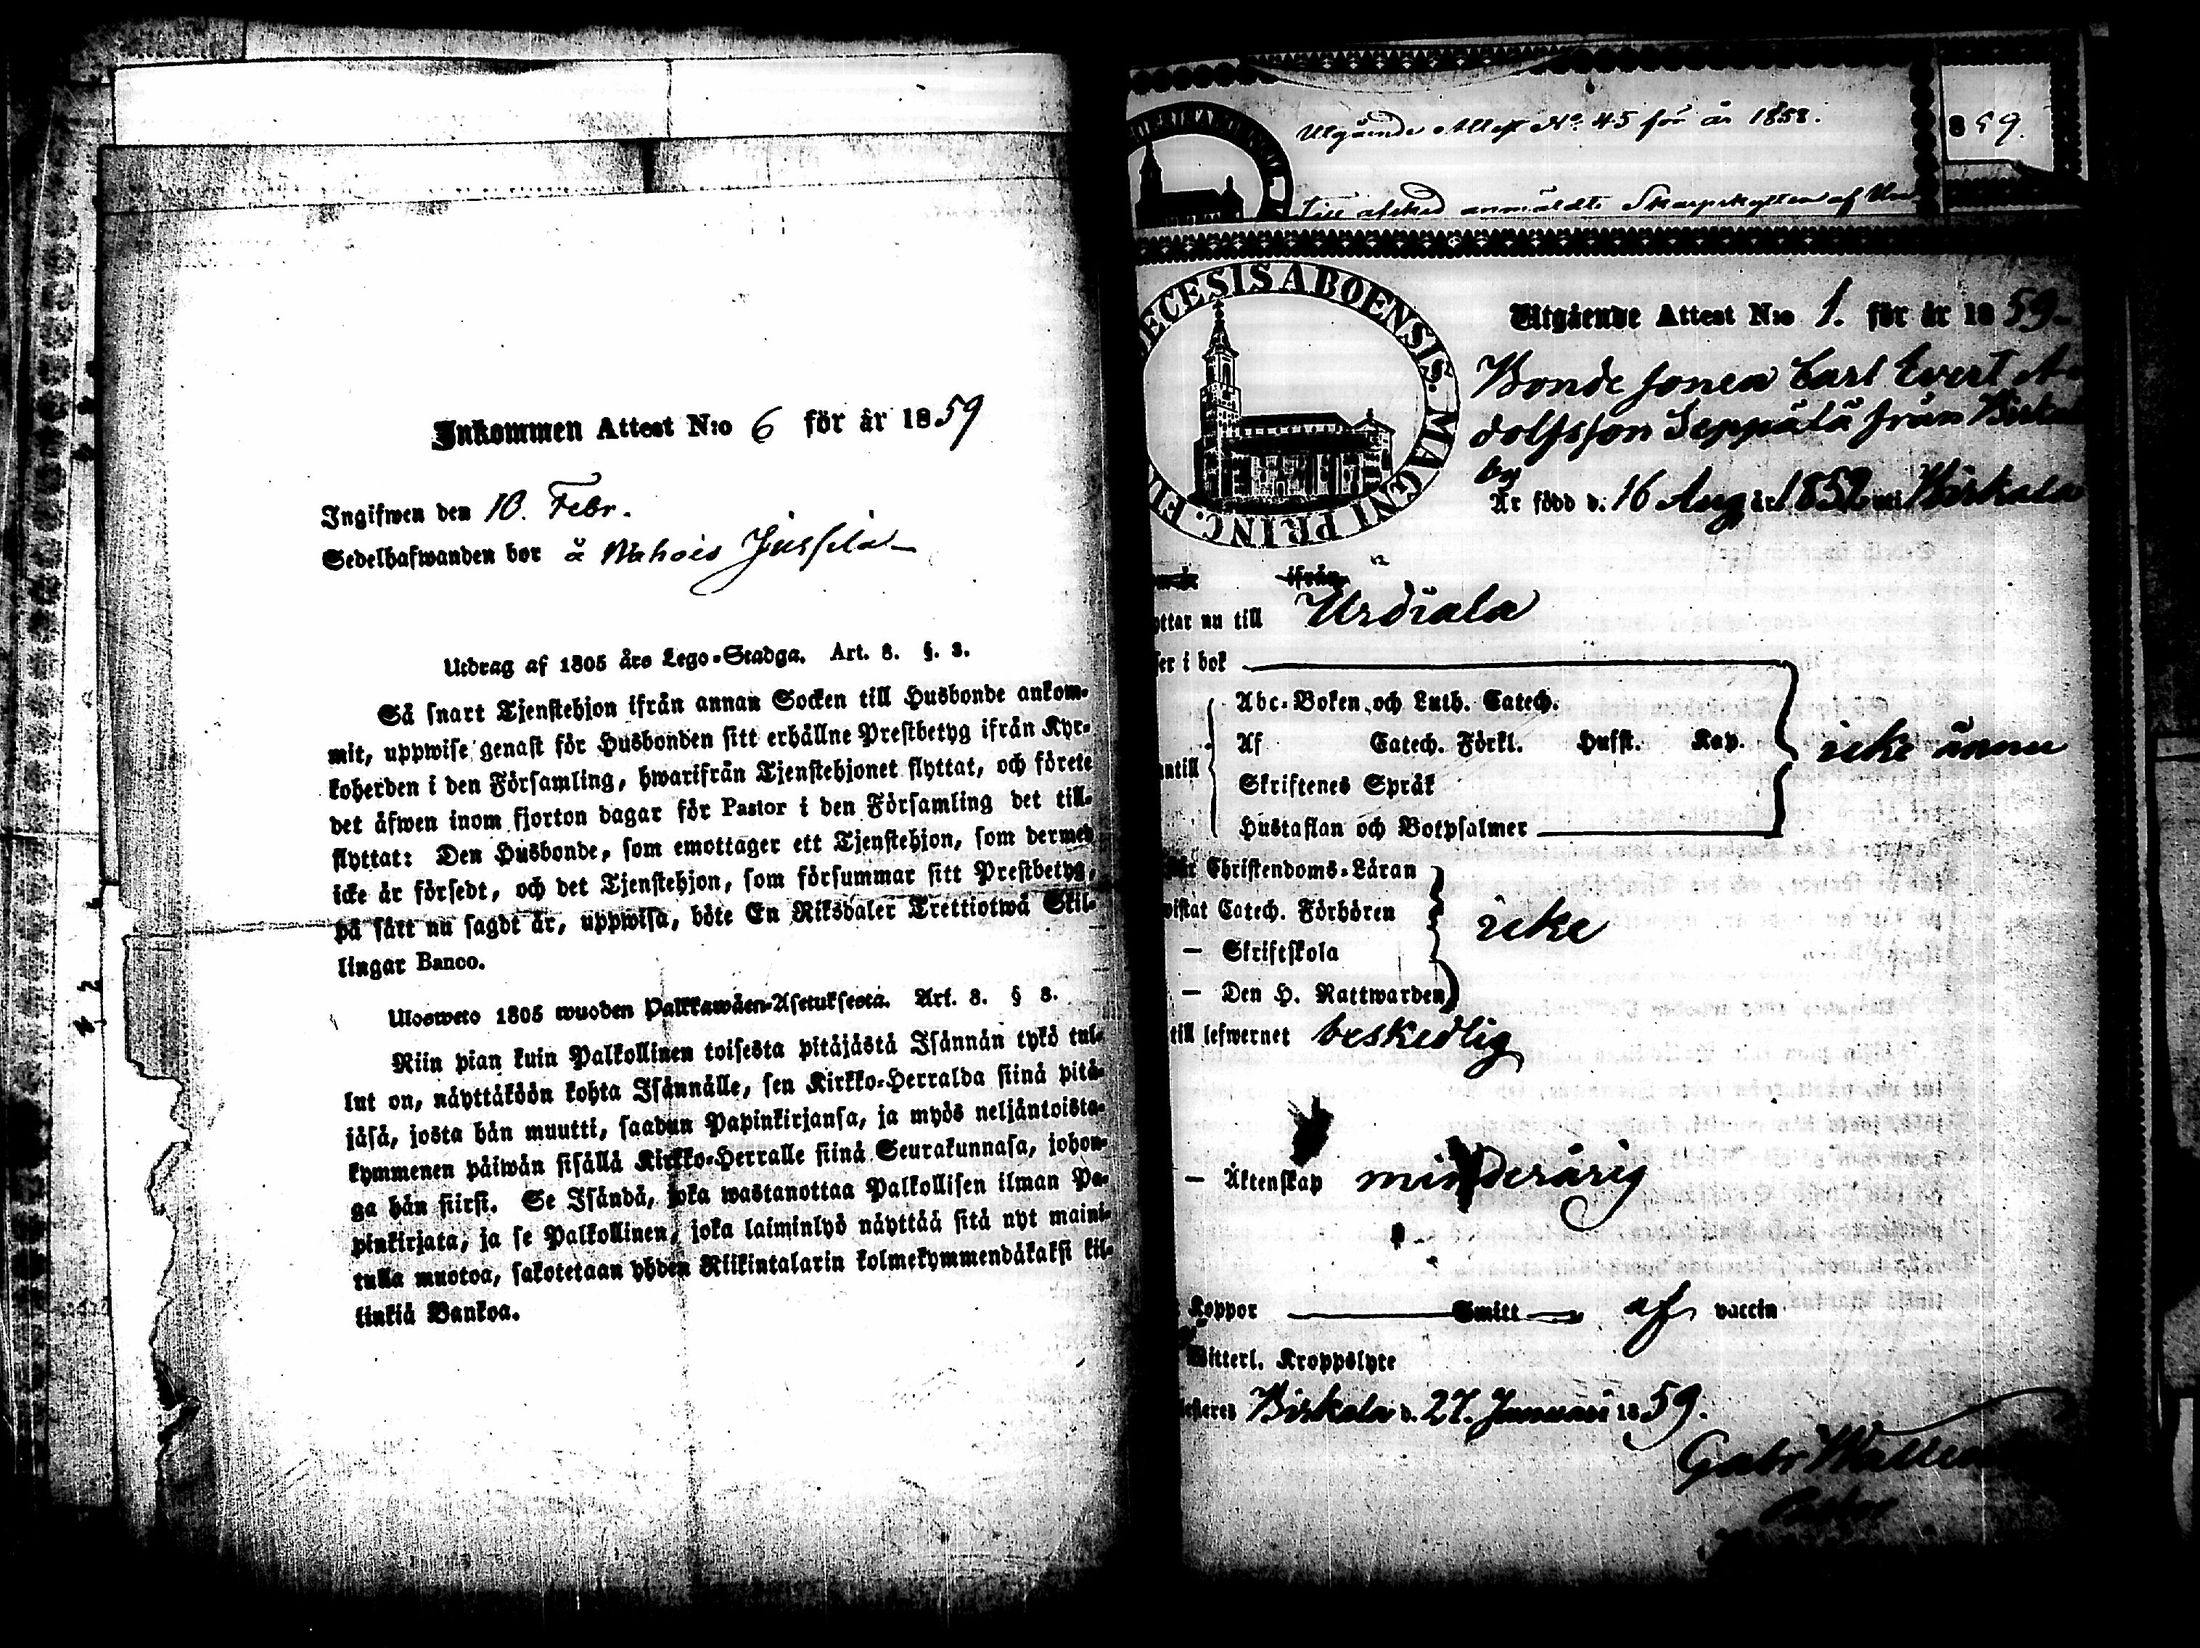 Inkommen Attest N:o 6 för år 1859
Ingifwen den 10. Febr.
Sedelhafwanden bor å Nuhois Jussila
Utdrag af 1805 års Lego-Stadga. Art. 8. §. 3.
Så snart Tjenstehjon ifrån annan Socken till Husbonde ankom-
mit, uppwise genast för Husbonden sitt erhållne Prestbetyg ifrån Kyr-
koherden i den Församling, hwarifrån Tjenstehjonet flyttat, och förete
det äfwen inom fjorton dagar för Pastor i den Församling det till-
flyttat: Den Husbonde, som emottager ett Tjenstehjon, som dermed
icke är försedt, och det Tjenstehjon, som försummar sitt Prestbetyg,
på sätt nu sagdt är, uppwisa, böte En Riksdaler Trettiotwå Skil-
lingar Banco.
Uloswето 1805 wuoden Palkkawäen-Asetuksesta. Art. 8. § 3.
Niin pian kuin Palkollinen toisesta pitäjästä Isännän tykö tul-
lut on, näyttäköön kohta Isännälle, sen Kirkko-Herralda siinä pitä-
jäsä, josta hän muutti, saadun Papinkirjansa, ja myös neljäntoista-
kymmenen päiwän sisällä Kirkko-Herralle siinä Seurakunnasa, johon-
ga hän siirsi. Se Isändä, joka wastanottaa Palkollisen ilman Pa-
pinkirjata, ja se Palkollinen, joka laiminlyö näyttää sitä nyt maini-
tulla muotoa, sakotetaan yhden Riikintalarin kolmekymmendäkaksi kil-
linkiä Bankoa.
Utgående Attest No 45 för år 1858.
859.
Till afsked anmäldte Skarpskytten af
ECESIS ABOENSIS. MAGNI PRINC. FI
Utgående Attest N:o 1. för år 1859
Bondesonen Carl Evert A
dolfsson Seppälä från Birkala
by
Är född d. 16 Aug år 1852 uti Birkala
ifrån
yttar nu till Urdiala
ser i bok
Abc-Boken och Luth. Catech.
Af Catech. Förkl. Hufst. Kap.
icke ännu
antill
Skriftenes Språk
Hustaflan och Botpsalmer
Christendoms-Läran
wistat Catech. Förhören
icke
— Skriftskola
— Den H. Nattwarden
till lefwernet beskedlig
— Äktenskap minderårig
Koppor Smitt af vaccin
Witterl. Kroppslyte
testeres Birkala d. 27. Januari 1859.
Gabr Wallen
Pastor